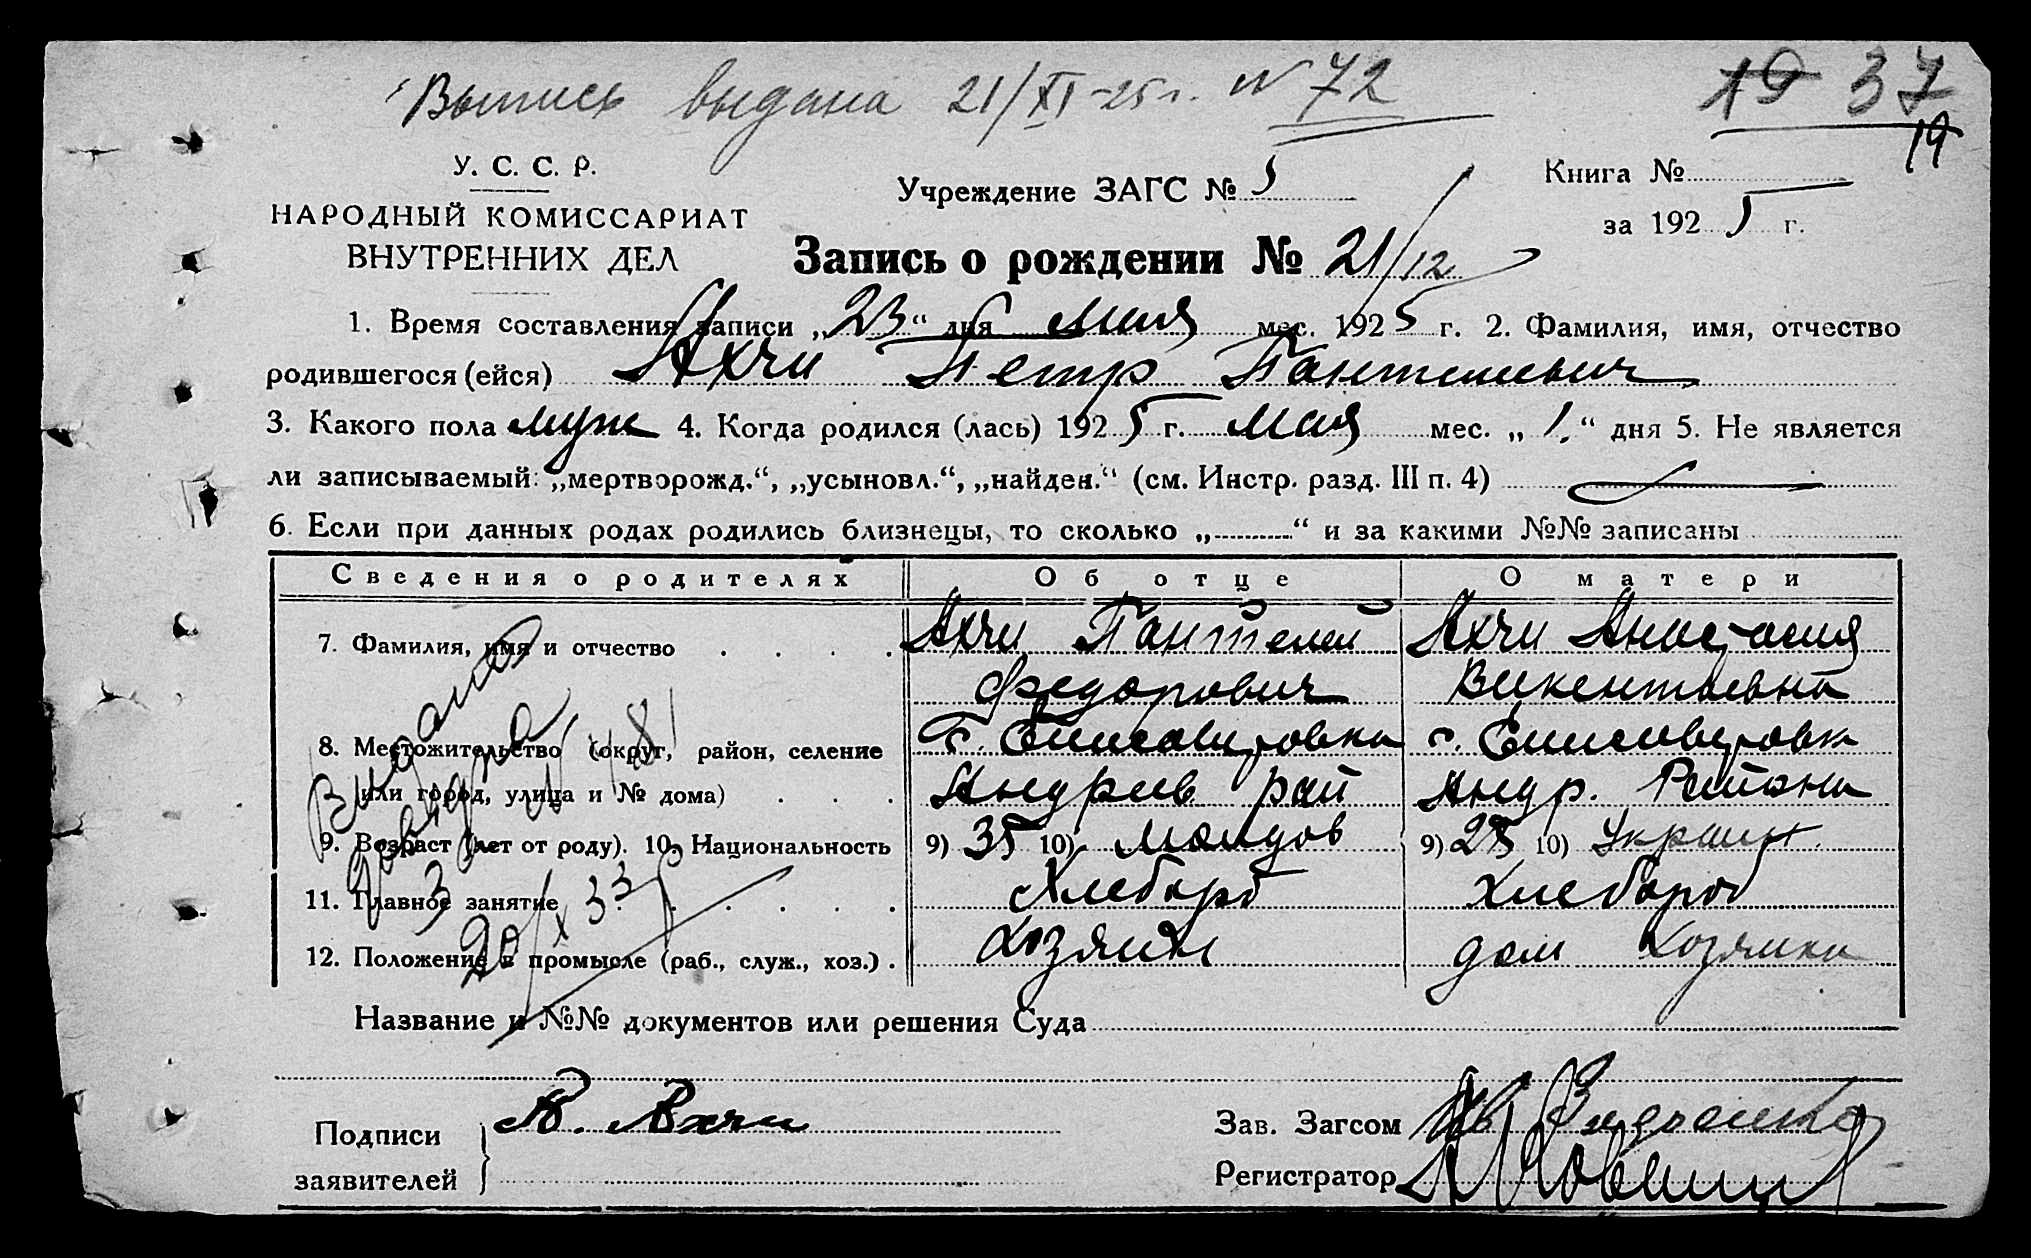 Выпись выдана 21/XI-25 г. N 72
19 37
19
У. С. С. Р.
НАРОДНЫЙ КОМИССАРИАТ
ВНУТРЕННИХ ДЕЛ
Учреждение ЗАГС № 5
Книга №
за 1925 г.
Запись о рождении № 21/12
1. Время составления записи „23“ дня мая мес. 1925 г. 2. Фамилия, имя, отчество
родившегося (ейся) Ахчи Петр Пантелеевич
3. Какого пола муж 4. Когда родился (лась) 1925 г. мая мес. „1.“ дня 5. Не является
ли записываемый: „мертворожд.“, „усыновл.“, „найден.“ (см. Инстр. разд. III п. 4)
6. Если при данных родах родились близнецы, то сколько „ “ и за какими №№ записаны
Сведения о родителях Об отце О матери
7. Фамилия, имя и отчество Ахчи Пантелей Ахчи Анастасия
Федорович Викентьевна
8. Местожительство (округ, район, селение с. Елисаветовка с. Елисаветовк
или город, улица и № дома) Андреев рай Андр. Района
9. Возраст (лет от роду). 10. Национальность 9) 35 10) Молдов 9) 28 10) Украин.
11. Главное занятие Хлебороб Хлебороб
12. Положение в промысле (раб., служ., хоз.) Хозяин дом Хозяйка
Выдано
N 481
3
20/X 33 р
Название и №№ документов или решения Суда
Подписи
заявителей
П. Ахчи
Зав. Загсом
Регистратор